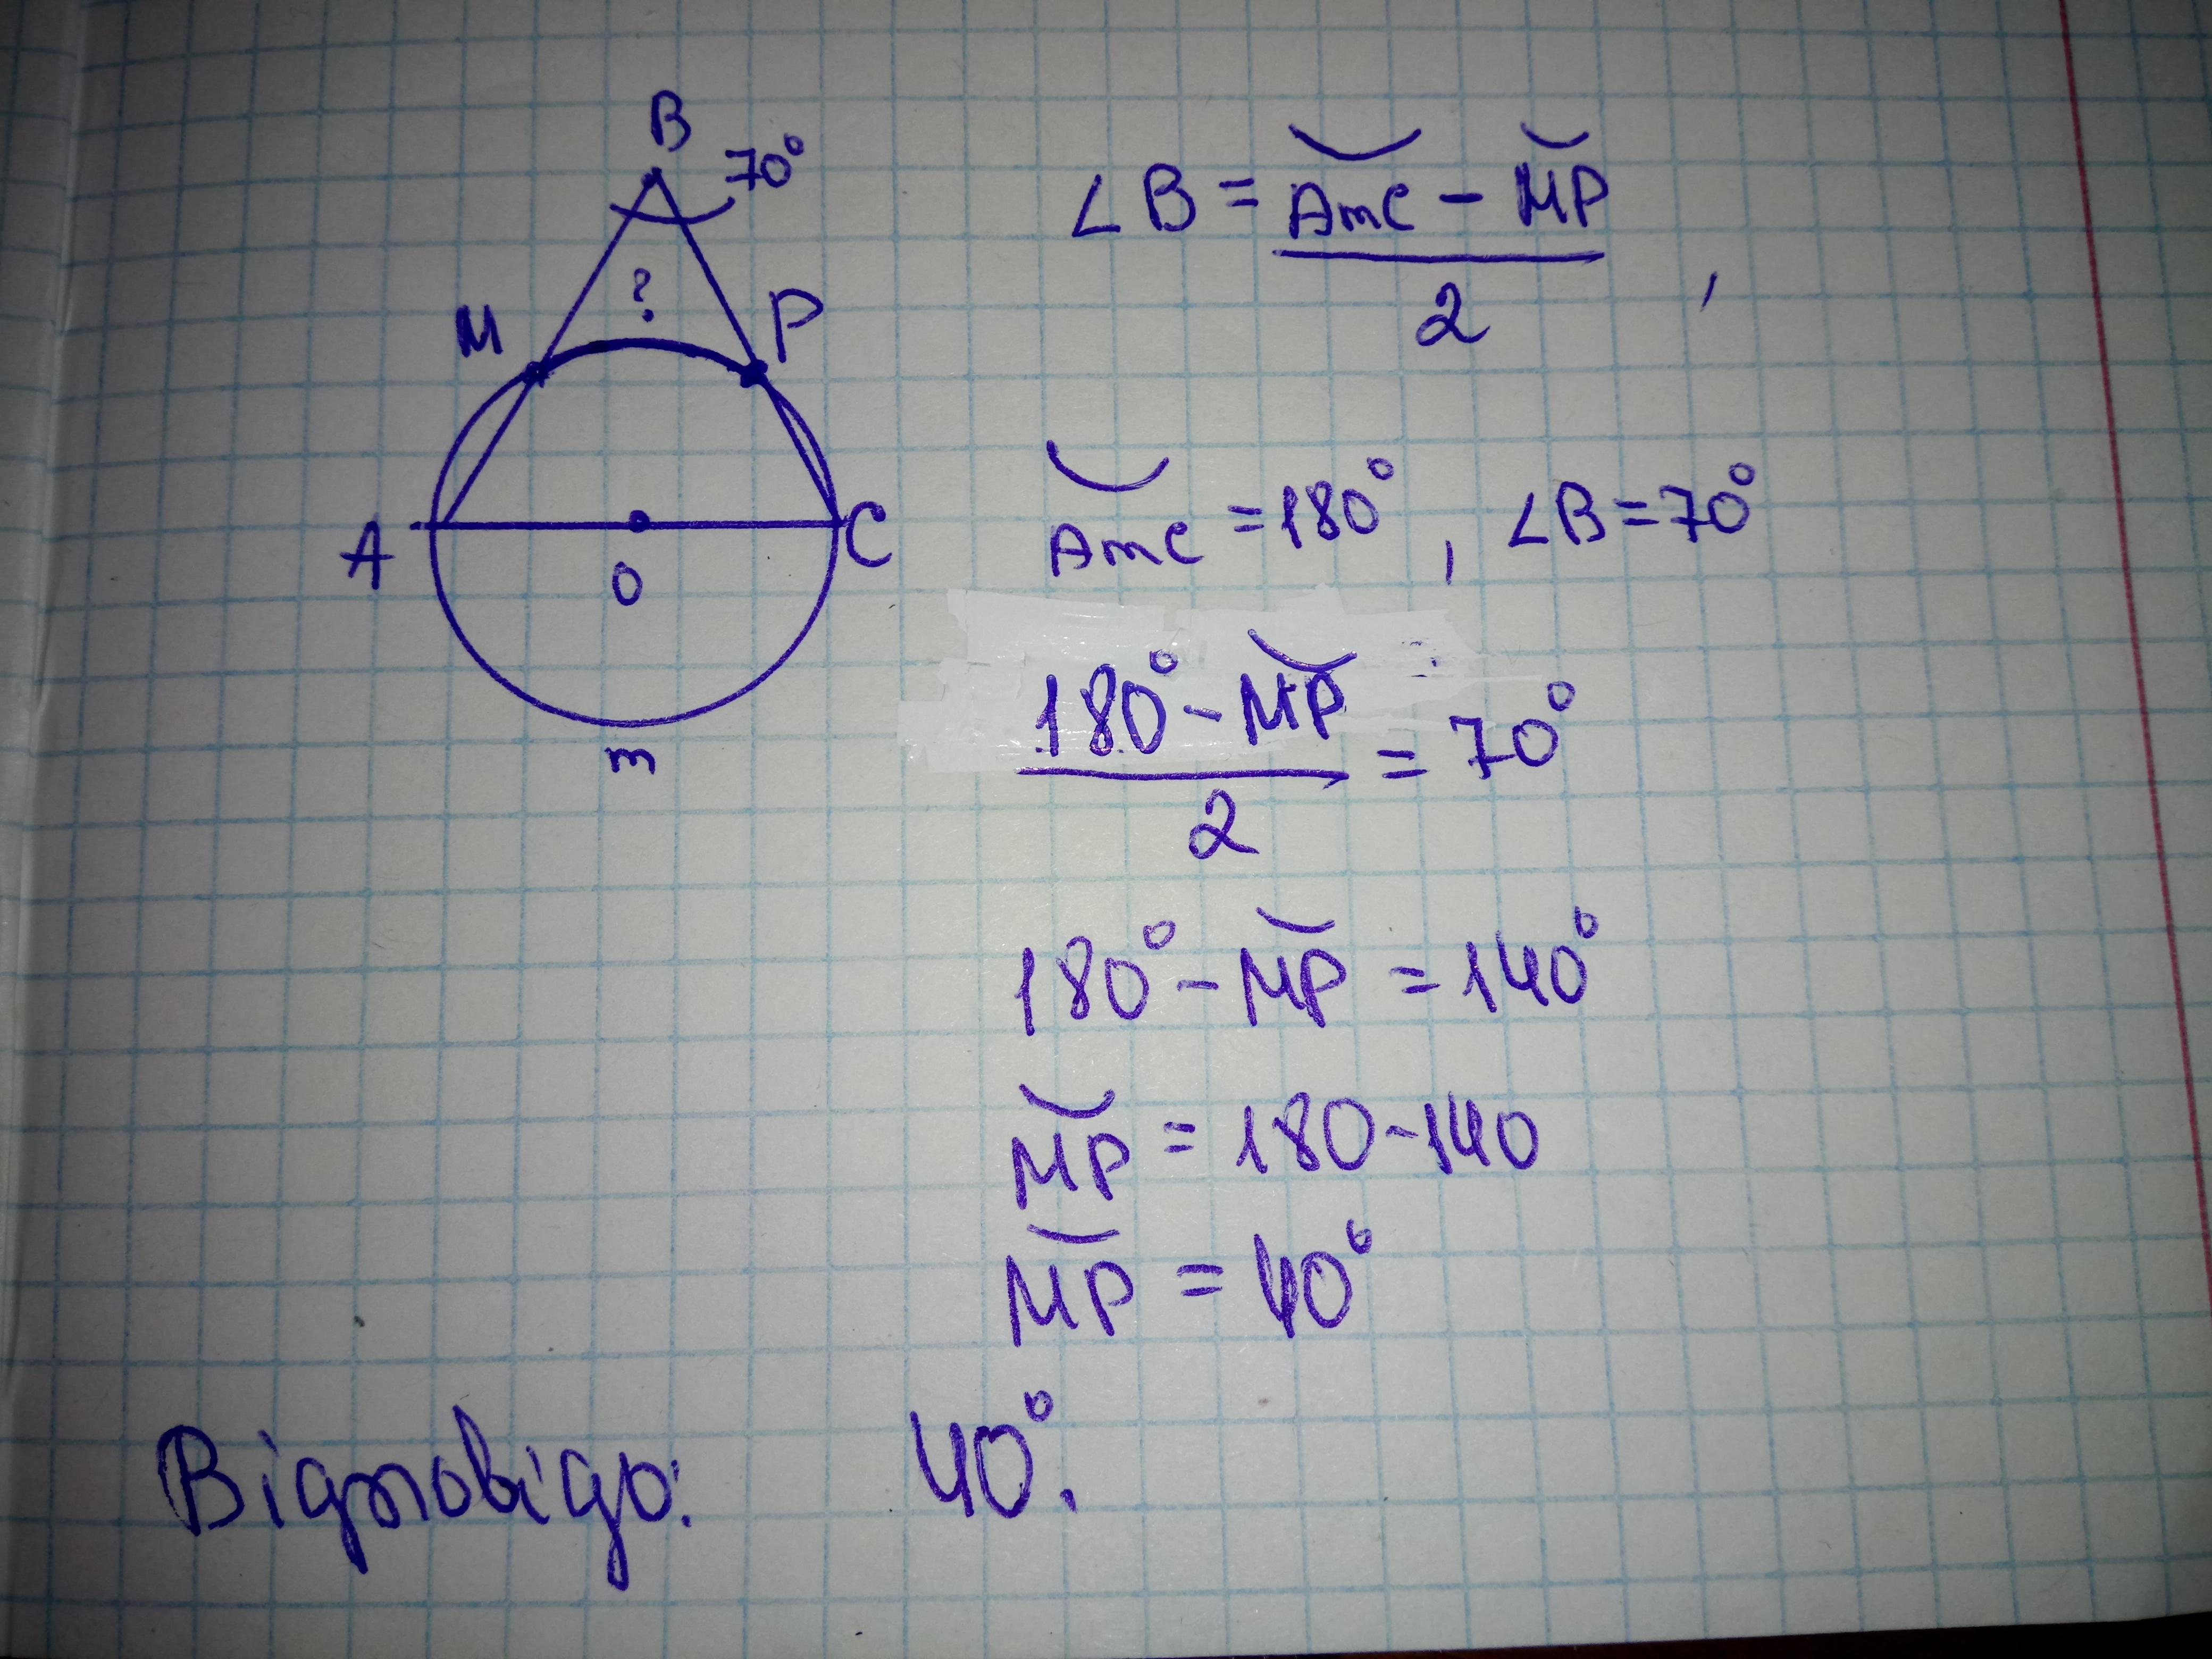 B
70°
?
M
P
A
C
O
m
∠B = (AmC - MP) / 2 ,
AmC = 180° , ∠B = 70°
(180° - MP) / 2 = 70°
180° - MP = 140°
MP = 180 - 140
MP = 40°
Відповідь: 40°.